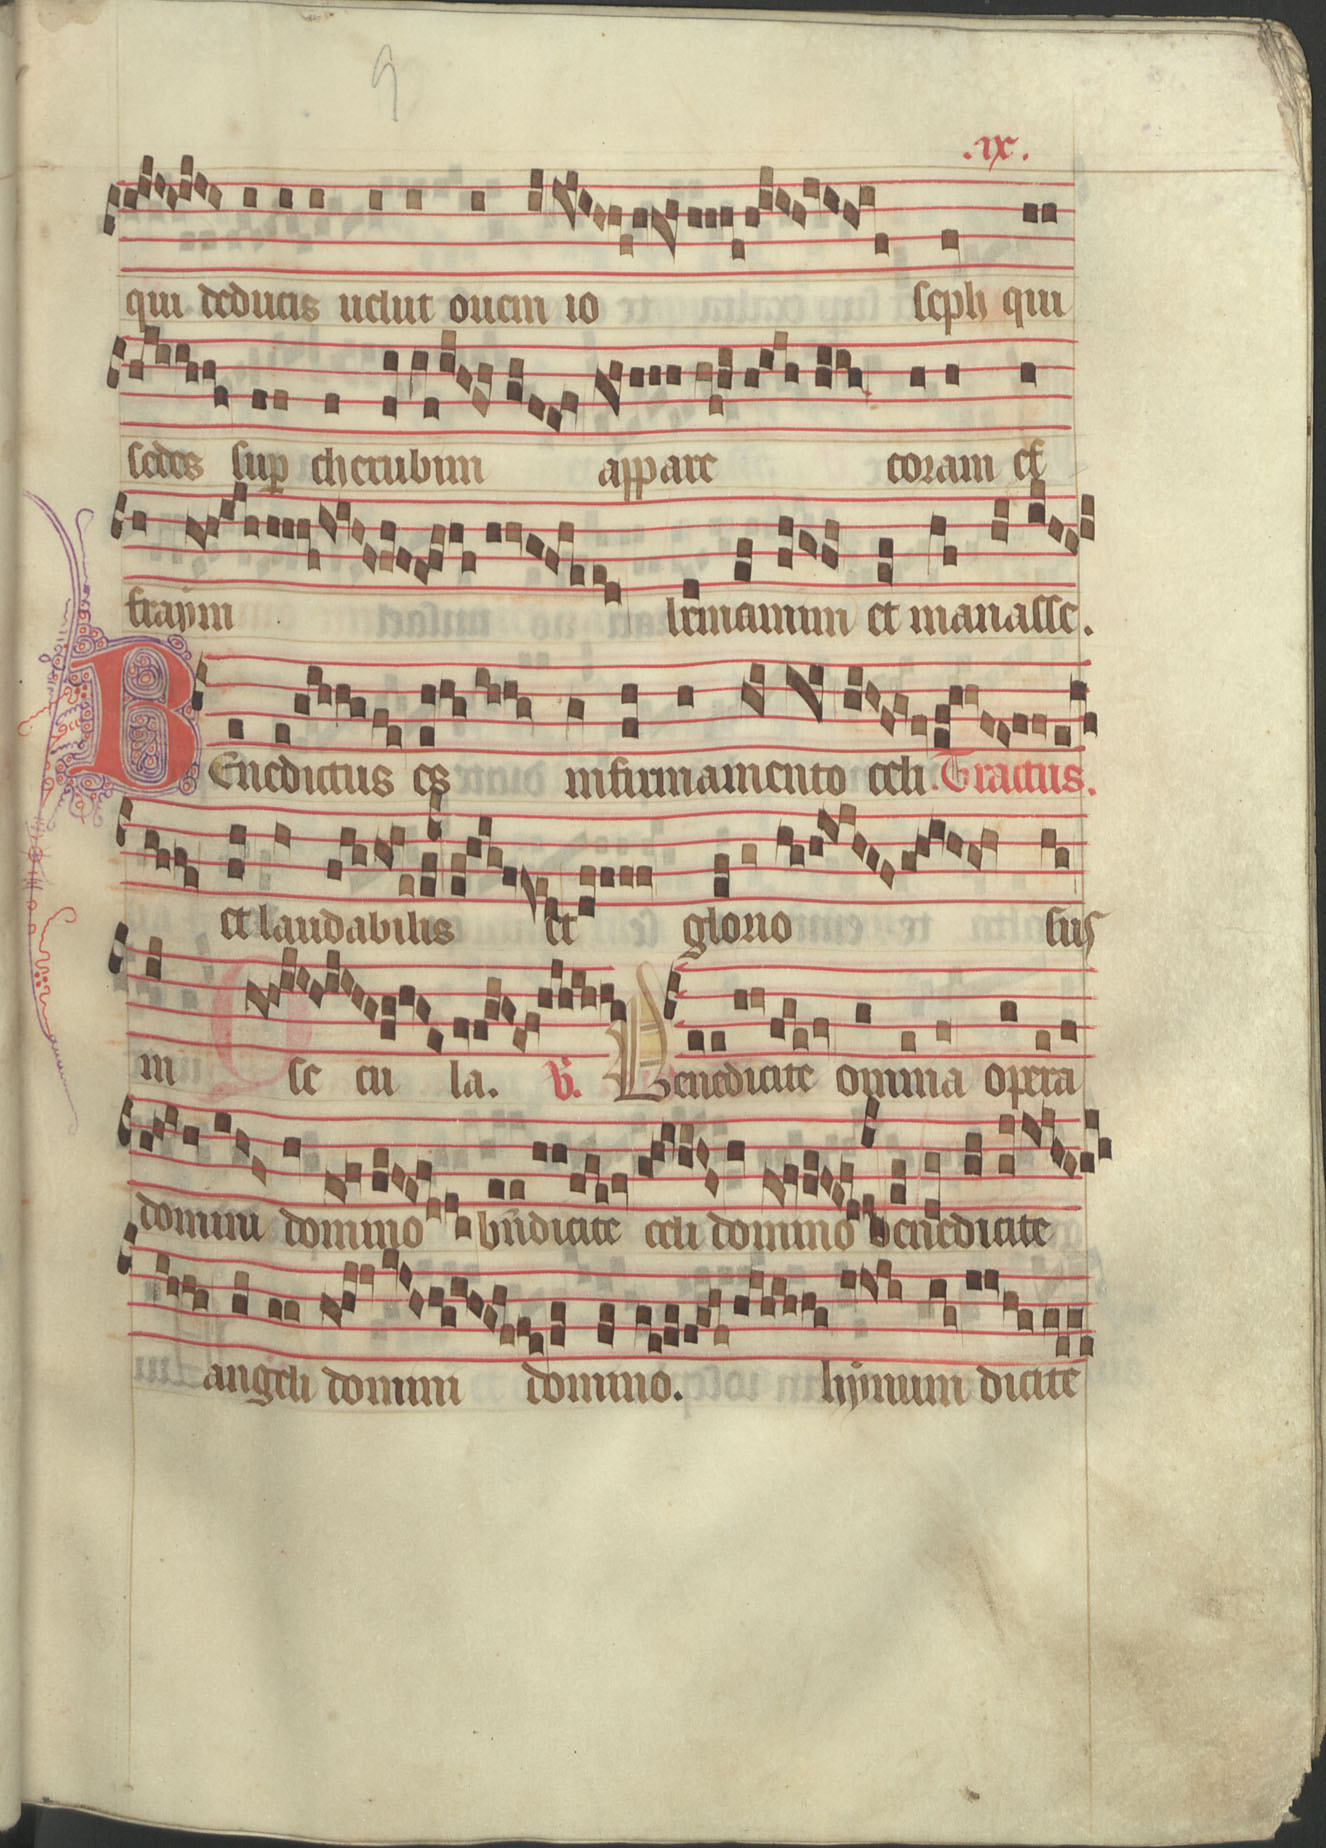 9
.ix.
qui deducis uelut ouem io seph qui
sedes sup cherubim appare coram ef
fraym beniamim et manasse.
BEnedictus es in firmamento celi. Tractus.
et laudabilis et glorio sus
in se cu la. V. Benedicite omnia opera
domini domino bn̄dicite celi domino benedicite
angeli domini domino. hymnum dicite